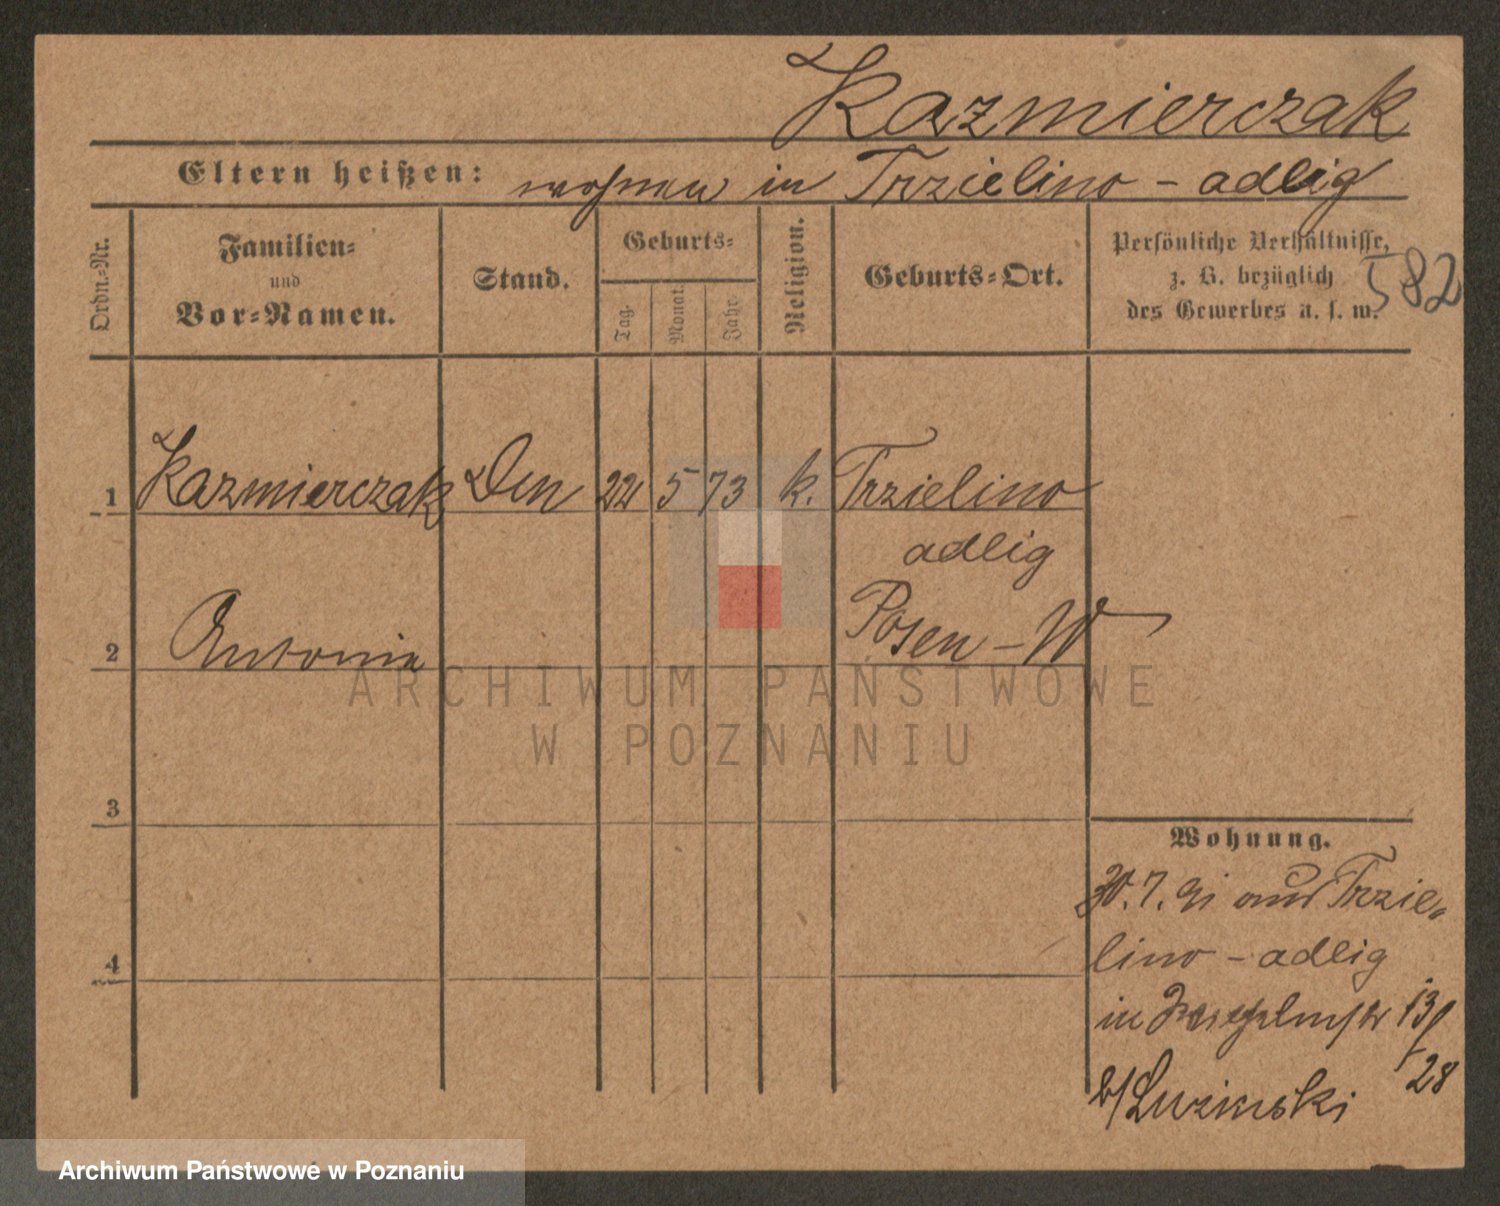 Kazmierczak
Eltern heißen: wohnen in Trzielino - adlig
Ordn.-Nr.
Familien-
und
Vor-Namen.
Stand.
Geburts-
Tag.
Monat.
Jahr.
Religion.
Geburts-Ort.
Persönliche Verhältnisse,
z. B. bezüglich
des Gewerbes u. s. w.
582
1 Kazmierczak 22 5 73 k. Trzielino
adlig
2 Antonie Posen - W
3
4
Wohnung.
30. 7. 91 aus Trzie-
lino - adlig
in 13/
28
b/
ARCHIWUM PAŃSTWOWE
W POZNANIU
Archiwum Państwowe w Poznaniu